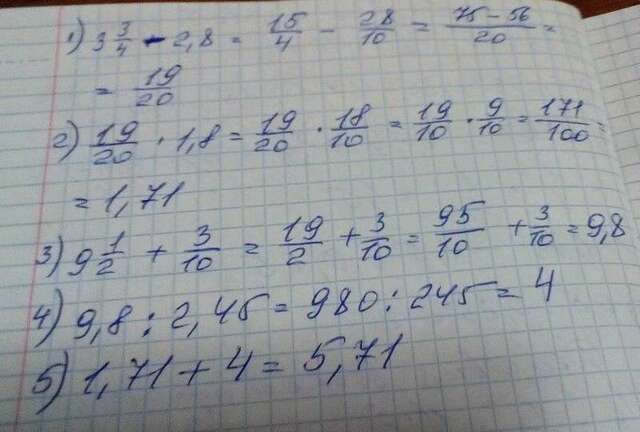 1) 3 3/4 - 2,8 = 15/4 - 28/10 = 75-56/20 =
= 19/20
2) 19/20 · 1,8 = 19/20 · 18/10 = 19/10 · 9/10 = 171/100 =
= 1,71
3) 9 1/2 + 3/10 = 19/2 + 3/10 = 95/10 + 3/10 = 9,8
4) 9,8 : 2,45 = 980 : 245 = 4
5) 1,71 + 4 = 5,71